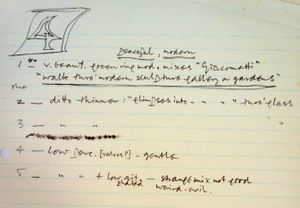 4
peaceful, modern
1 — v. beaut. green ring mod. mixes "Giacometti"
"walk thro' modern sculpture gallery or gardens"
2 — ditto thinner: "glimpses into - " " " thro' glass
3 — " "
4 — low - gentle
5 " " + low git. — strange mix not good
weird. evil.